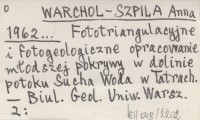 0
WARCHOL-SZPILA Anna
1962... Fototriangulacyjne
i fotogeologiczne opracowanie
młodszej pokrywy w dolinie
potoku Sucha Woda w Tatrach.
— Biul. Geol. Uniw. Warsz.
2: